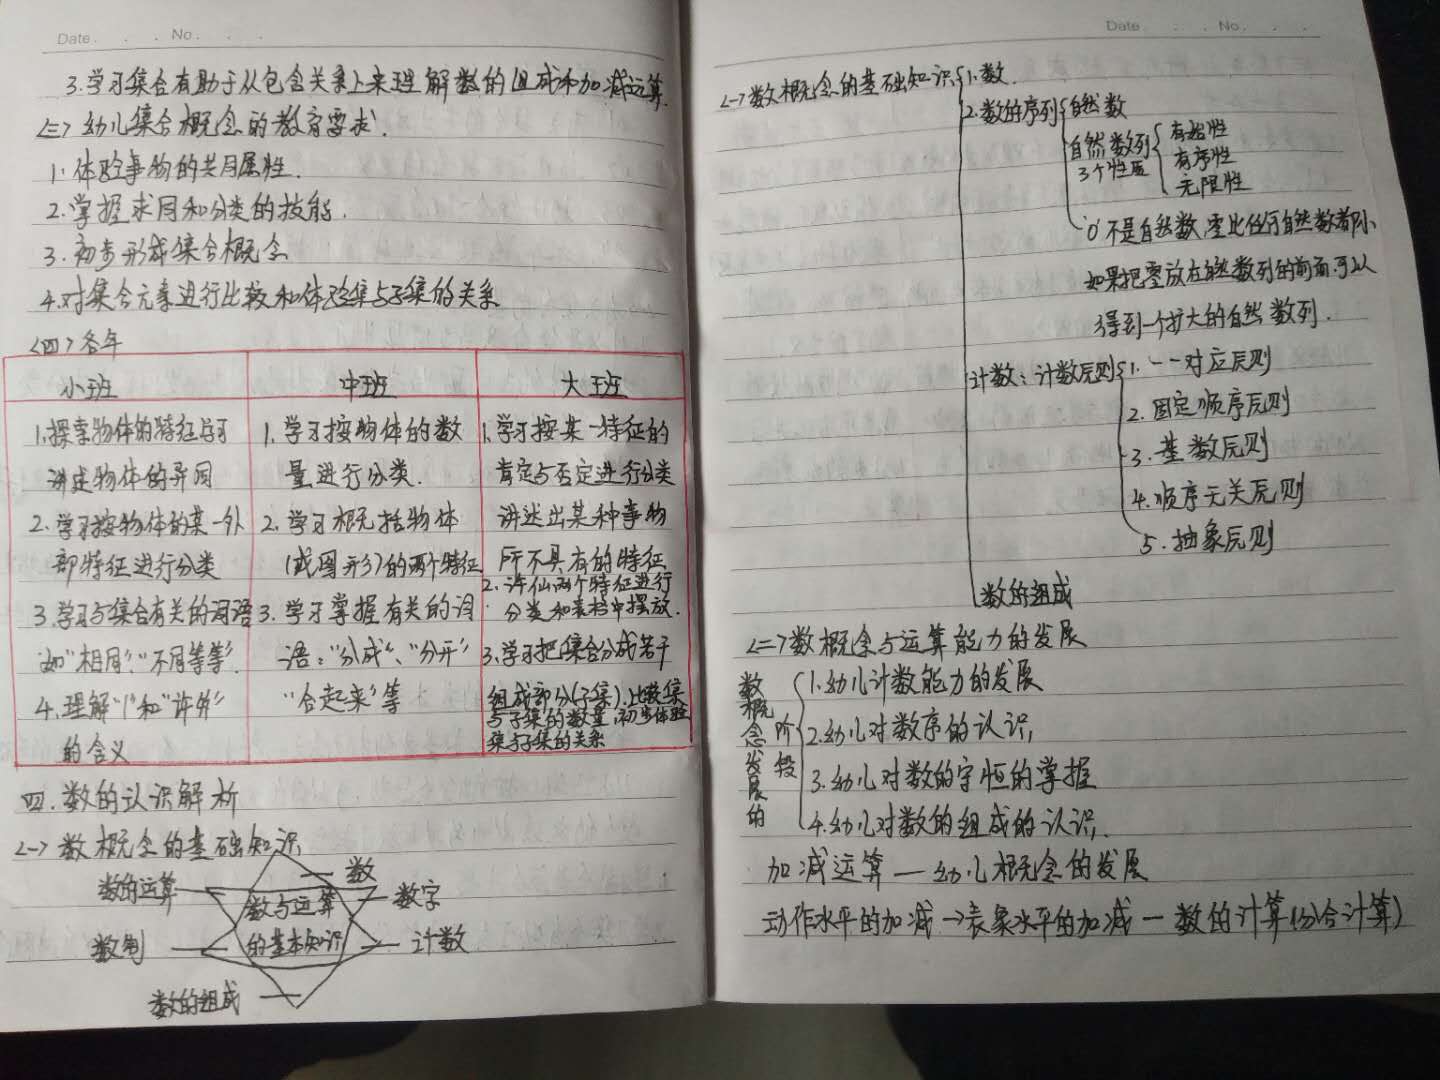 Date. . . No. . .
3.学习集合有助于从包含关系上来理解数的组成和加减运算.
<三>幼儿集合概念的教育要求.
1.体验事物的共同属性.
2.掌握求同和分类的技能.
3.初步形成集合概念
4.对集合元素进行比较和体验集与子集的关系
<四>各年
小班
1.探索物体的特征学习
讲述物体的异同
2.学习按物体的某一外
部特征进行分类
3.学习与集合有关的词语
如"相同"、"不同等等".
4.理解"1"和"许多"
的含义
中班
1.学习按物体的数
量进行分类.
2.学习概括物体
(或图形)的两个特征
3.学习掌握有关的词
语:"分成"、"分开"
"合起来"等
大班
1.学习按某一特征的
肯定与否定进行分类
讲述出某种事物
所不具有的特征
2.两个特征进行
分类和表格中摆放.
3.学习把集合分成若干
组成部分(子集).比较集
与子集的数量,初步体验
集与子集的关系
四.数的认识解析
<一>数概念的基础知识
数的运算
数
数与运算
数字
数制
的基本知识
计数
数的组成
Date. . . No. . .
<一>数概念的基础知识
1.数.
2.数的序列
自然数
自然数列
3个性质
有始性
有序性
无限性
'0'不是自然数,零比任何自然数都小
如果把零放在自然数列的前面,可以
得到一个扩大的自然数列.
计数:计数原则
1.一一对应原则
2.固定顺序原则
3.基数原则
4.顺序无关原则
5.抽象原则
数的组成
<二>数概念与运算能力的发展
数概念发展的
阶段
1.幼儿计数能力的发展
2.幼儿对数序的认识,
3.幼儿对数的守恒的掌握
4.幼儿对数的组成的认识,
加减运算—幼儿概念的发展
动作水平的加减→表象水平的加减—数的计算(分合计算)